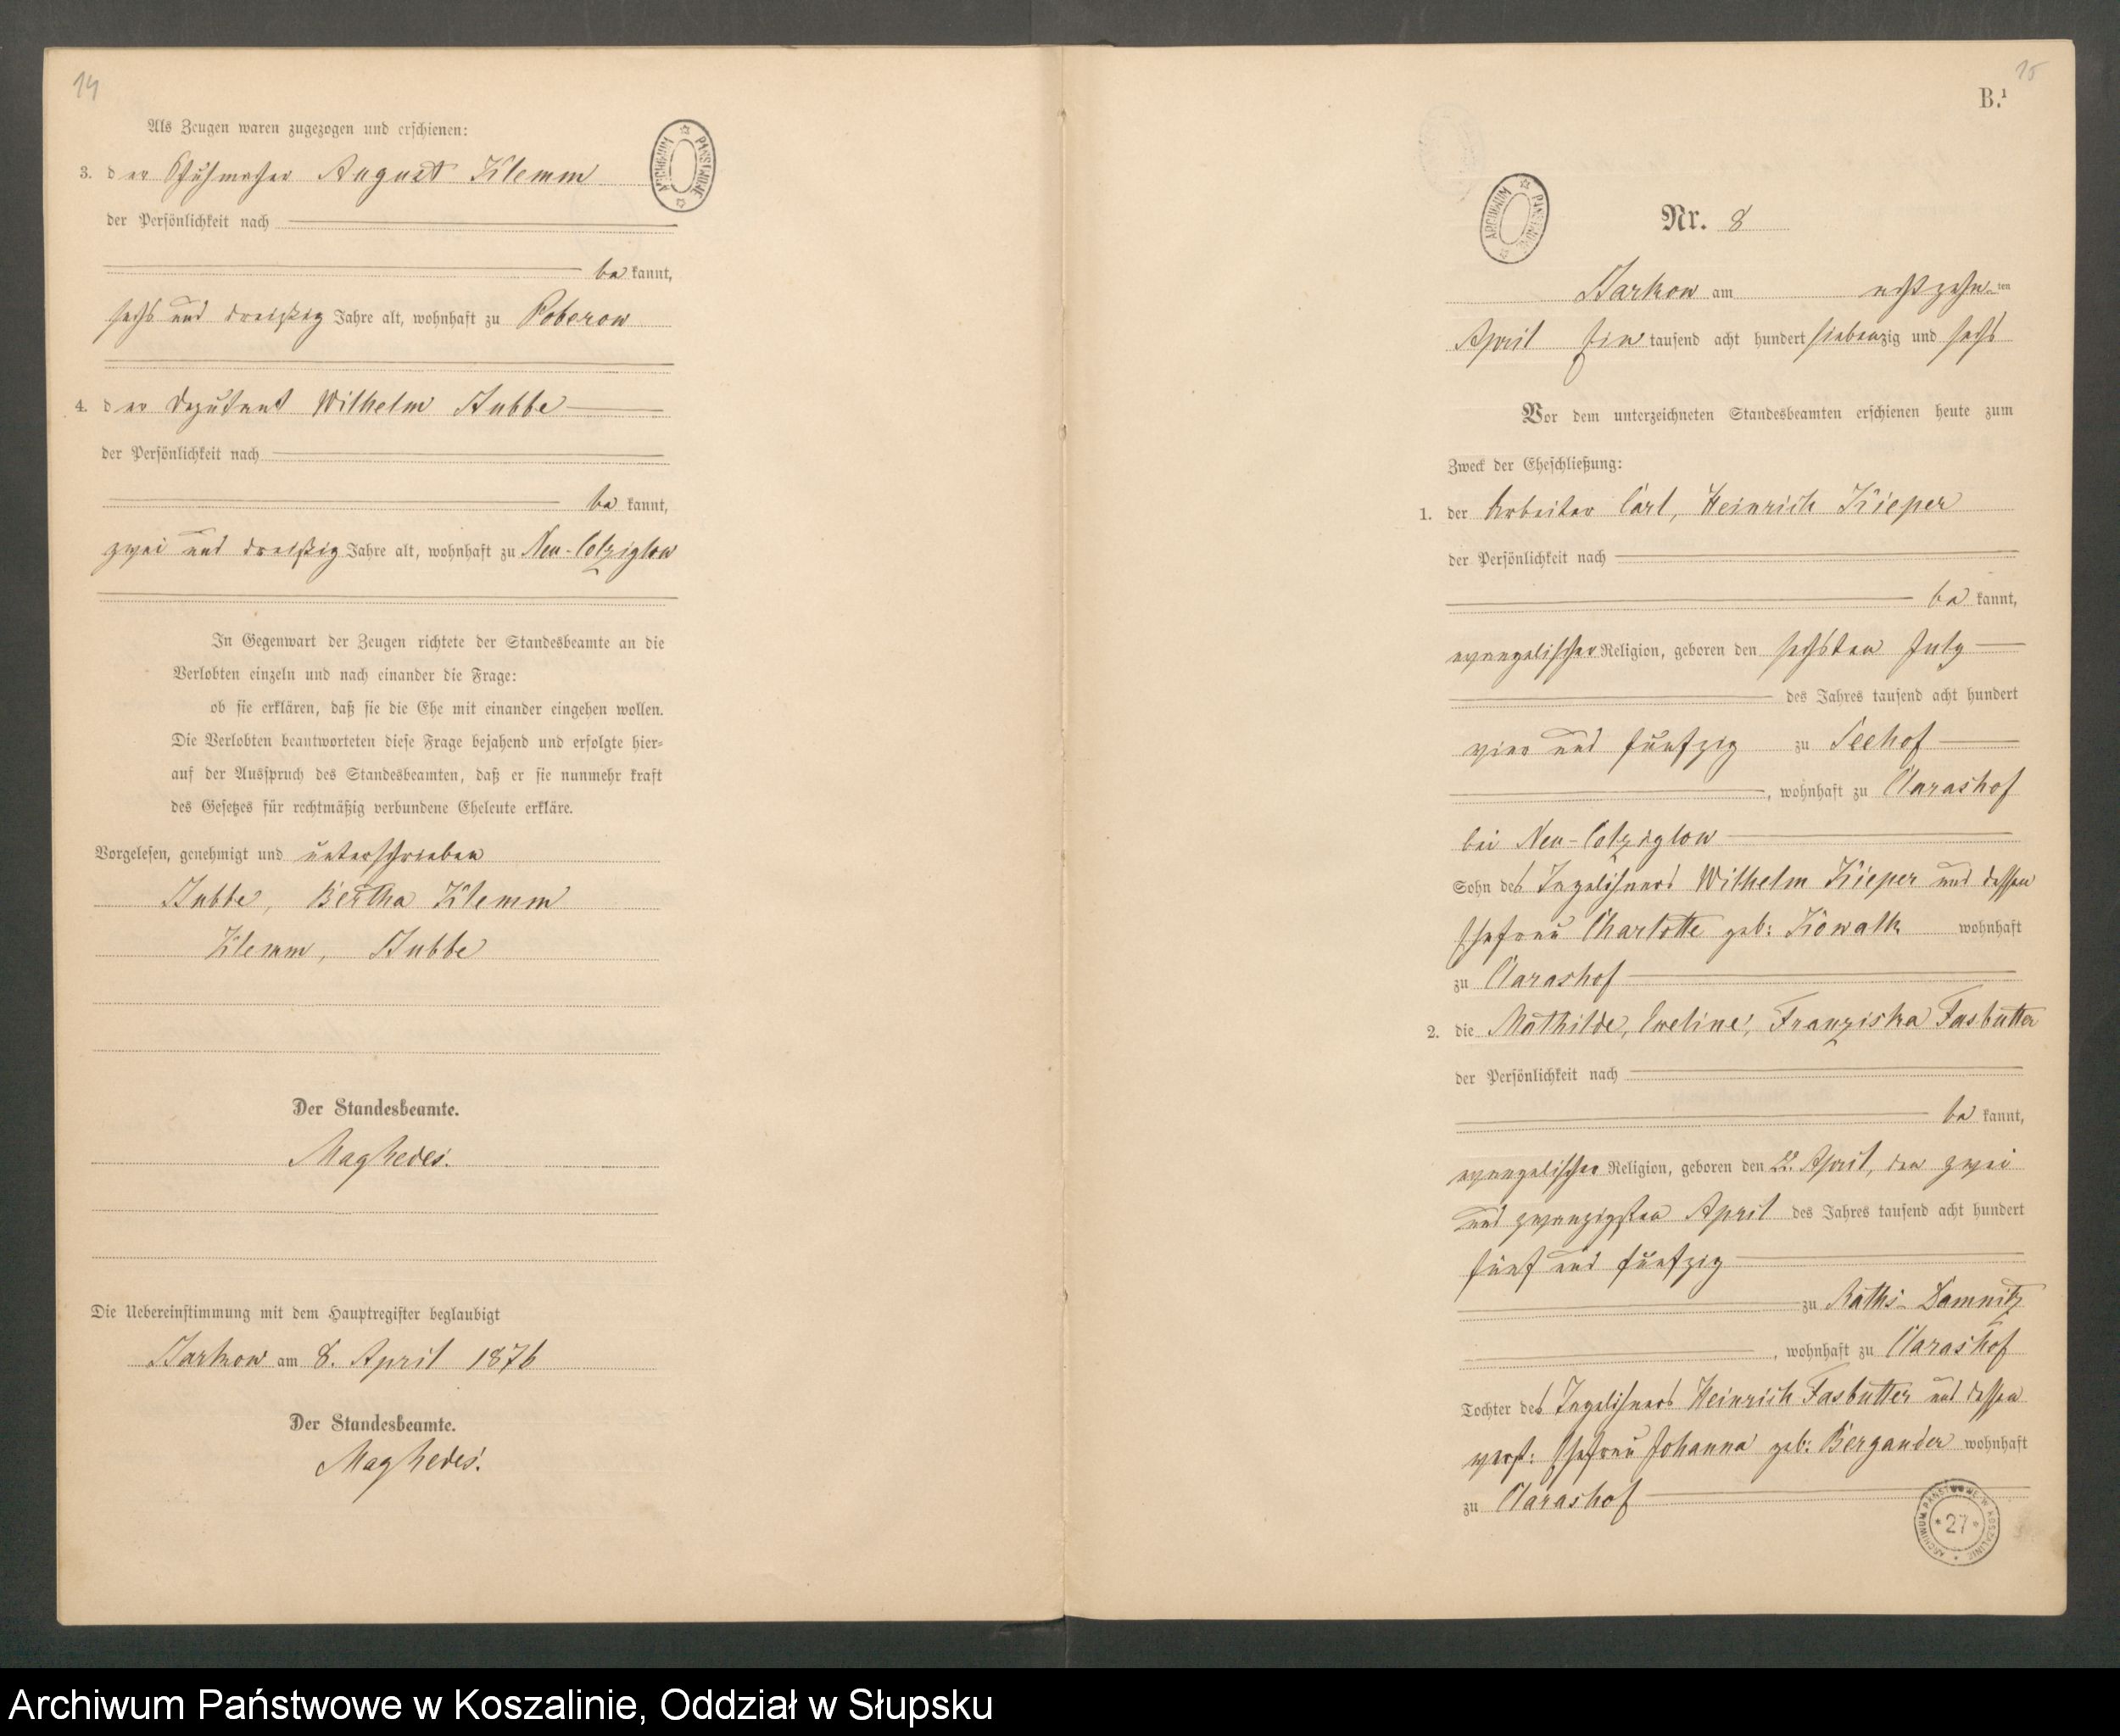 14
Als Zeugen waren zugezogen und erschienen:
3. der Schuhmacher August Klemm
der Persönlichkeit nach
be kannt,
sechs und dreißig Jahre alt, wohnhaft zu Poberow
4. der Deputant Wilhelm Stubbe
der Persönlichkeit nach
be kannt,
zwei und dreißig Jahre alt, wohnhaft zu Neu-Colziglow
In Gegenwart der Zeugen richtete der Standesbeamte an die
Verlobten einzeln und nach einander die Frage:
ob sie erklären, daß sie die Ehe mit einander eingehen wollen.
Die Verlobten beantworteten diese Frage bejahend und erfolgte hier-
auf der Ausspruch des Standesbeamten, daß er sie nunmehr kraft
des Gesetzes für rechtmäßig verbundene Eheleute erkläre.
Vorgelesen, genehmigt und unterschrieben
Stubbe, Bertha Klemm
Klemm, Stubbe
Der Standesbeamte.
Die Uebereinstimmung mit dem Hauptregister beglaubigt
Startkow am 8. April 1876
Der Standesbeamte.
ARCHIWUM PAŃSTWOWE
15
B.¹
ARCHIWUM PAŃSTWOWE
Nr. 8
am achtzehnten
April Ein tausend acht hundert siebenzig und sechs
Vor dem unterzeichneten Standesbeamten erschienen heute zum
Zweck der Eheschließung:
1. der Arbeiter Carl, Heinrich Kieper
der Persönlichkeit nach
be kannt,
evangelischer Religion, geboren den sechsten July
des Jahres tausend acht hundert
vier und funfzig zu Seehof
, wohnhaft zu Clarashof
bei Neu-Colziglow
Sohn des Tagelöhners Wilhelm Kieper und dessen
Ehefrau Charlotte geb: Kowalk wohnhaft
zu Clarashof
2. die Mathilde, Eveline, Franziska Fasbutter
der Persönlichkeit nach
be kannt,
evangelischer Religion, geboren den 22. April, den zwei
und zwanzigsten April des Jahres tausend acht hundert
fünf und funfzig
zu Raths-Damnitz
, wohnhaft zu Clarashof
Tochter des Tagelöhners Heinrich Fasbutter und dessen
verst: Ehefrau Johanna geb: Bergander wohnhaft
zu Clarashof
ARCHIWUM PAŃSTWOWE W KOSZALINIE
* 27 *
Archiwum Państwowe w Koszalinie, Oddział w Słupsku